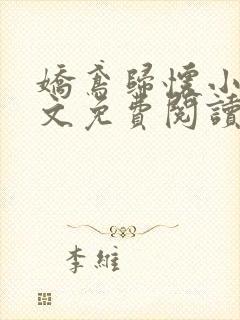 嬌鸞歸懷小
文免費閱讀
李維